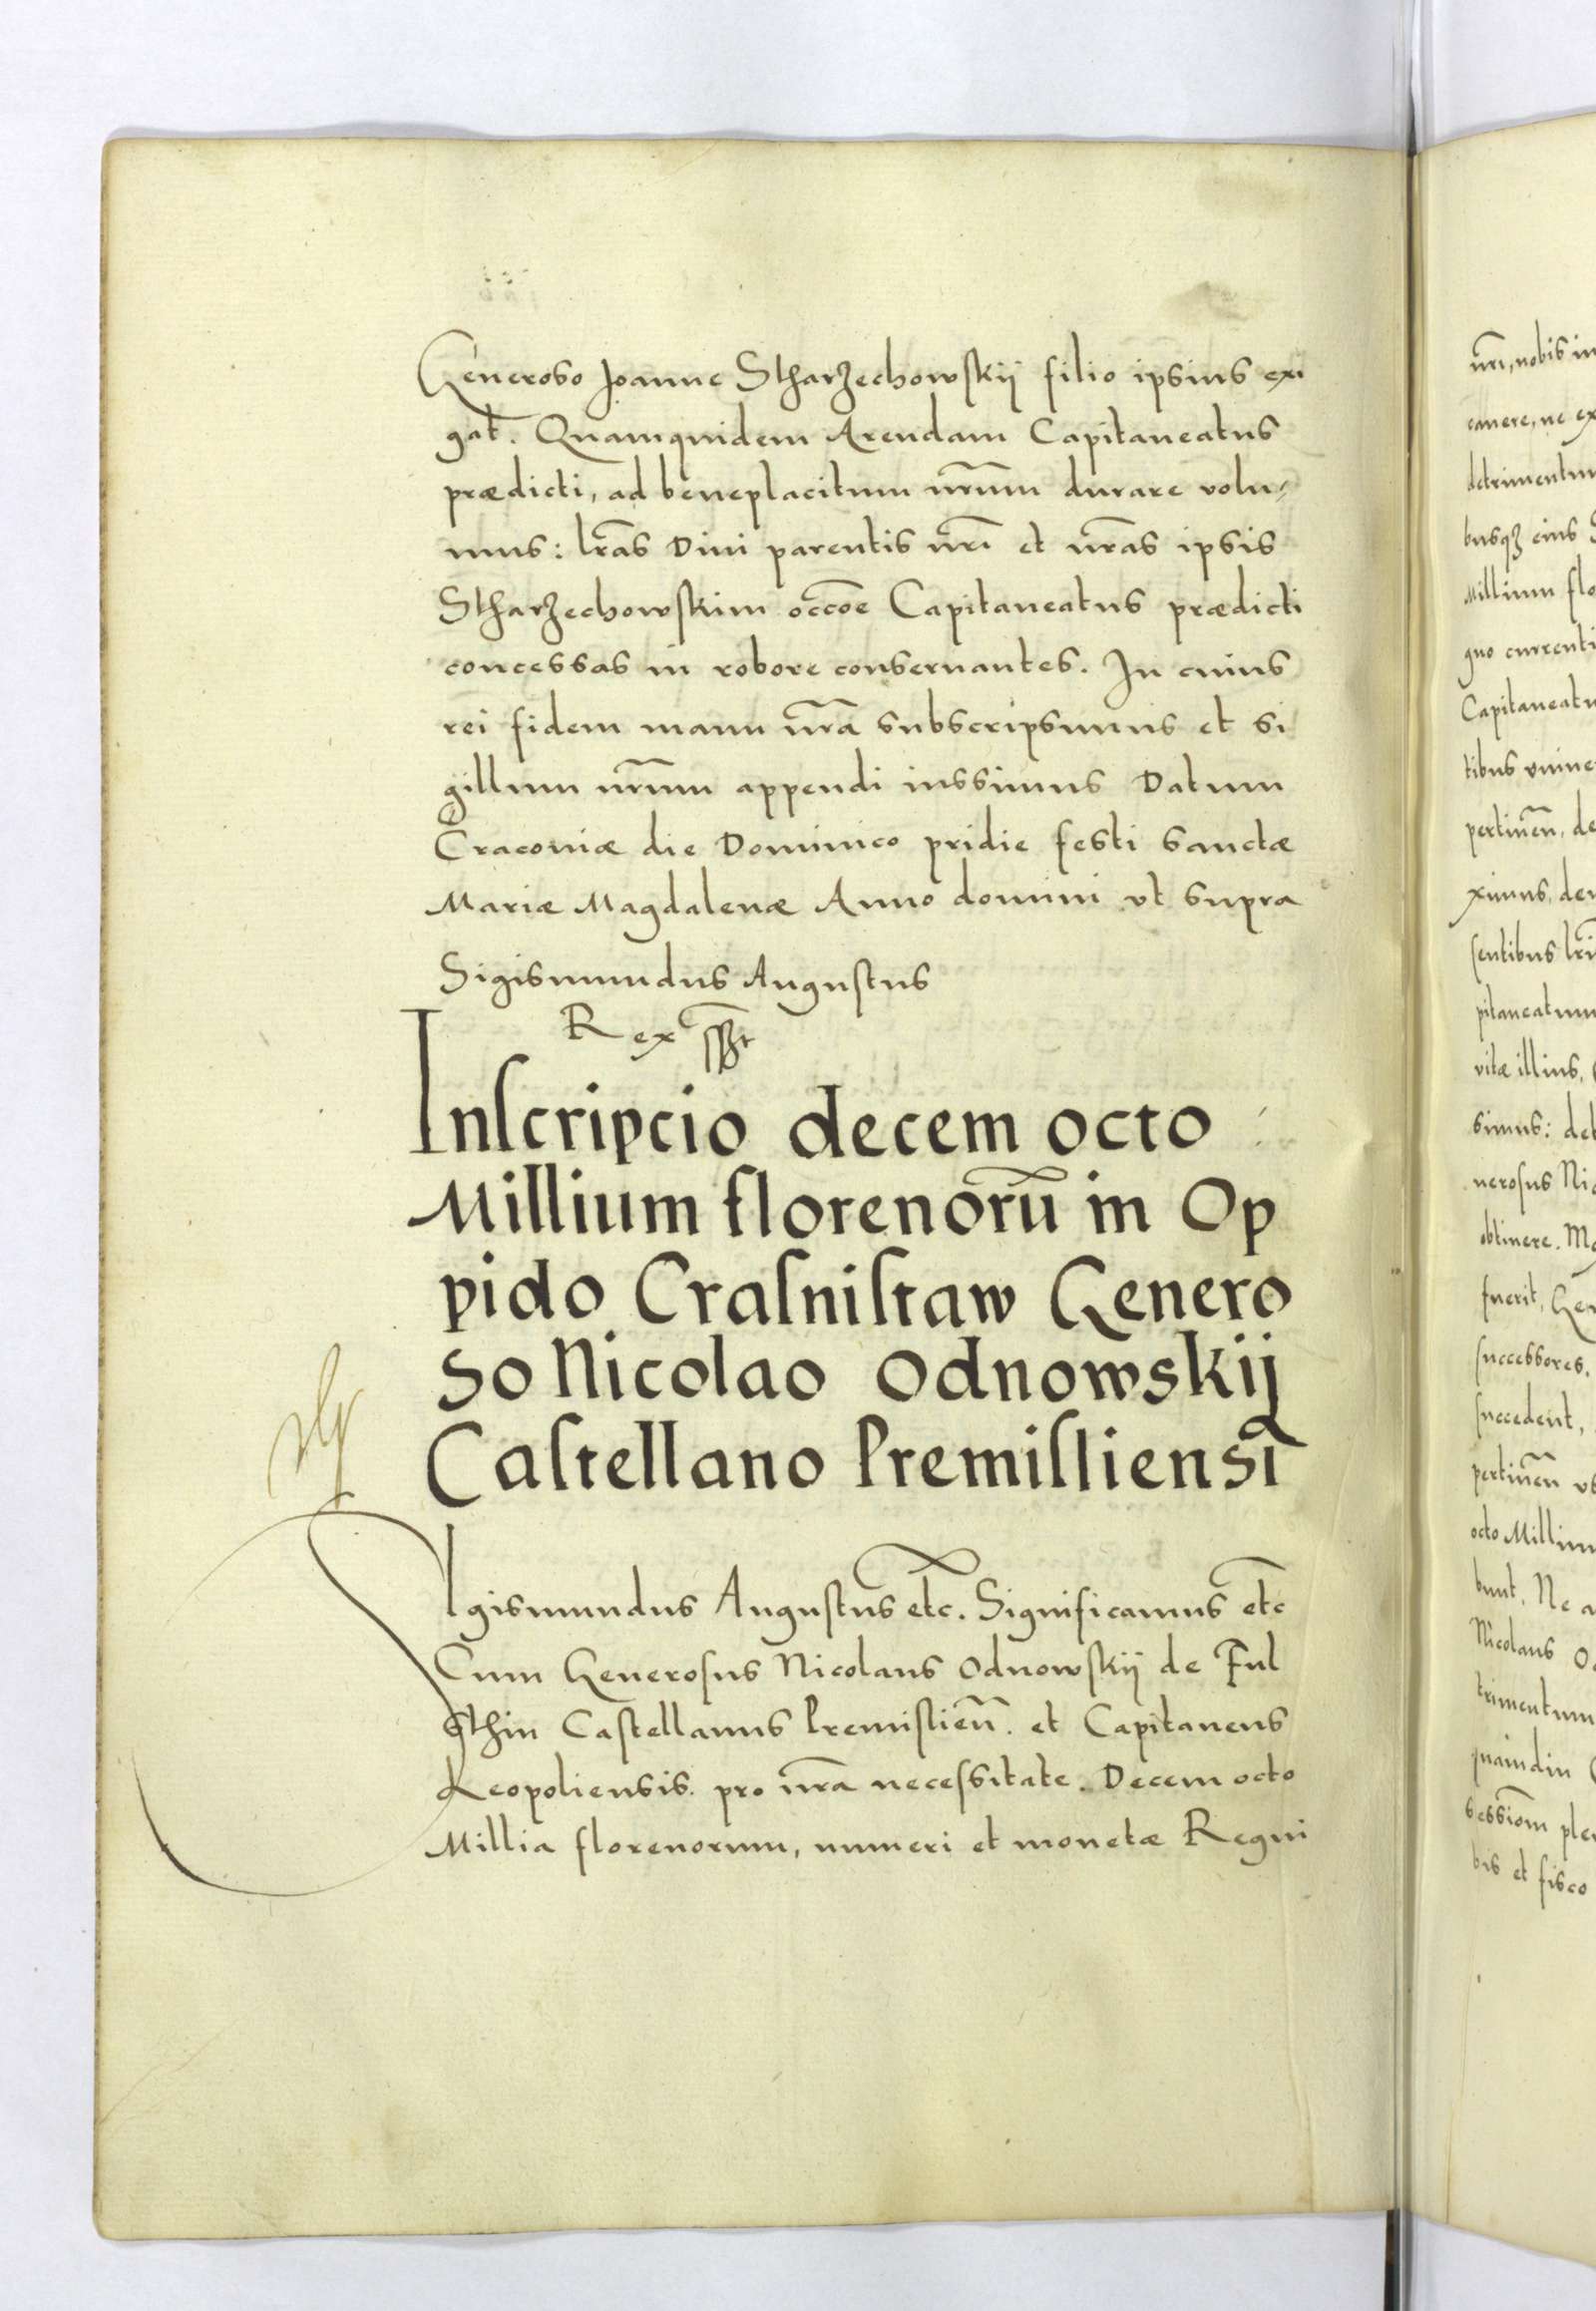 Generoso Joanne Stharzechowskij filio ipsius exi
gat. Quamquidem Arendam Capitaneatus
prædicti, ad beneplacitum nr̃um durare volu⸗
mus: lr̃as Diui parentis nr̃i et nr̃as ipsis
Stharzechowskim occõe Capitaneatus prædicti
concessas in robore conseruantes. In cuius
rei fidem manu nr̃a subscripsimus et si
gillum nr̃um appendi iussimus Datum
Cracoviæ die Dominico pridie festi sanctæ
Mariæ Magdalenæ Anno domini vt supra
Sigismundus Augustus
Rex
Inscripcio decem octo
Millium florenorũ in Op
pido Crasnistaw Genero
so Nicolao Odnowskij
Castellano Premisliensi
Sigismundus Augustus etc. Significamus etc
Cum Generosus Nicolaus Odnowskij de Ful
sthin Castellanus Premislieñ. et Capitaneus
Leopoliensis. pro nr̃a necessitate. Decem octo
Millia florenorum, numeri et monetæ Regni
nr̃i, nobis in
cauere, ne ex
detrimentum
busqꝫ eius S
Millium flo
quo currenti
Capitaneatu
tibus vniuer
pertineñ, de
ximus, de
sentibus lr̃i
pitaneatum
vitæ illius,
simus: deb
nerosus Nic
obtinere.
fuerit, Gen
successores,
succedent,
pertineñ vt
octo Millium
bunt. Ne a
Nicolaus Od
trimentum
quamdiu
sessiom̃ plen
bis et fisco